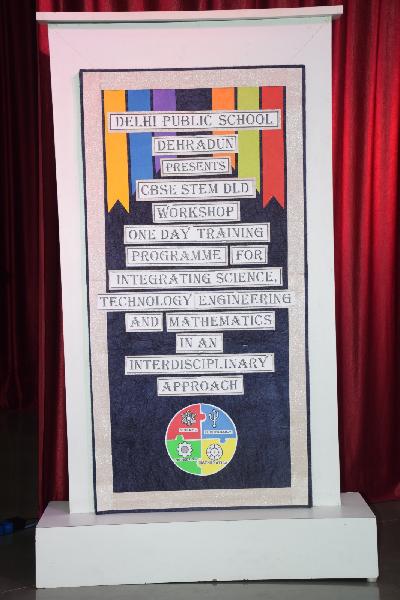 DELHI PUBLIC SCHOOL
DEHRADUN
PRESENTS
CBSE STEM DLD
WORKSHOP
ONE DAY TRAINING
PROGRAMME FOR
INTEGRATING SCIENCE,
TECHNOLOGY ENGINEERING
AND MATHEMATICS
IN AN
INTERDISCIPLINARY
APPROACH